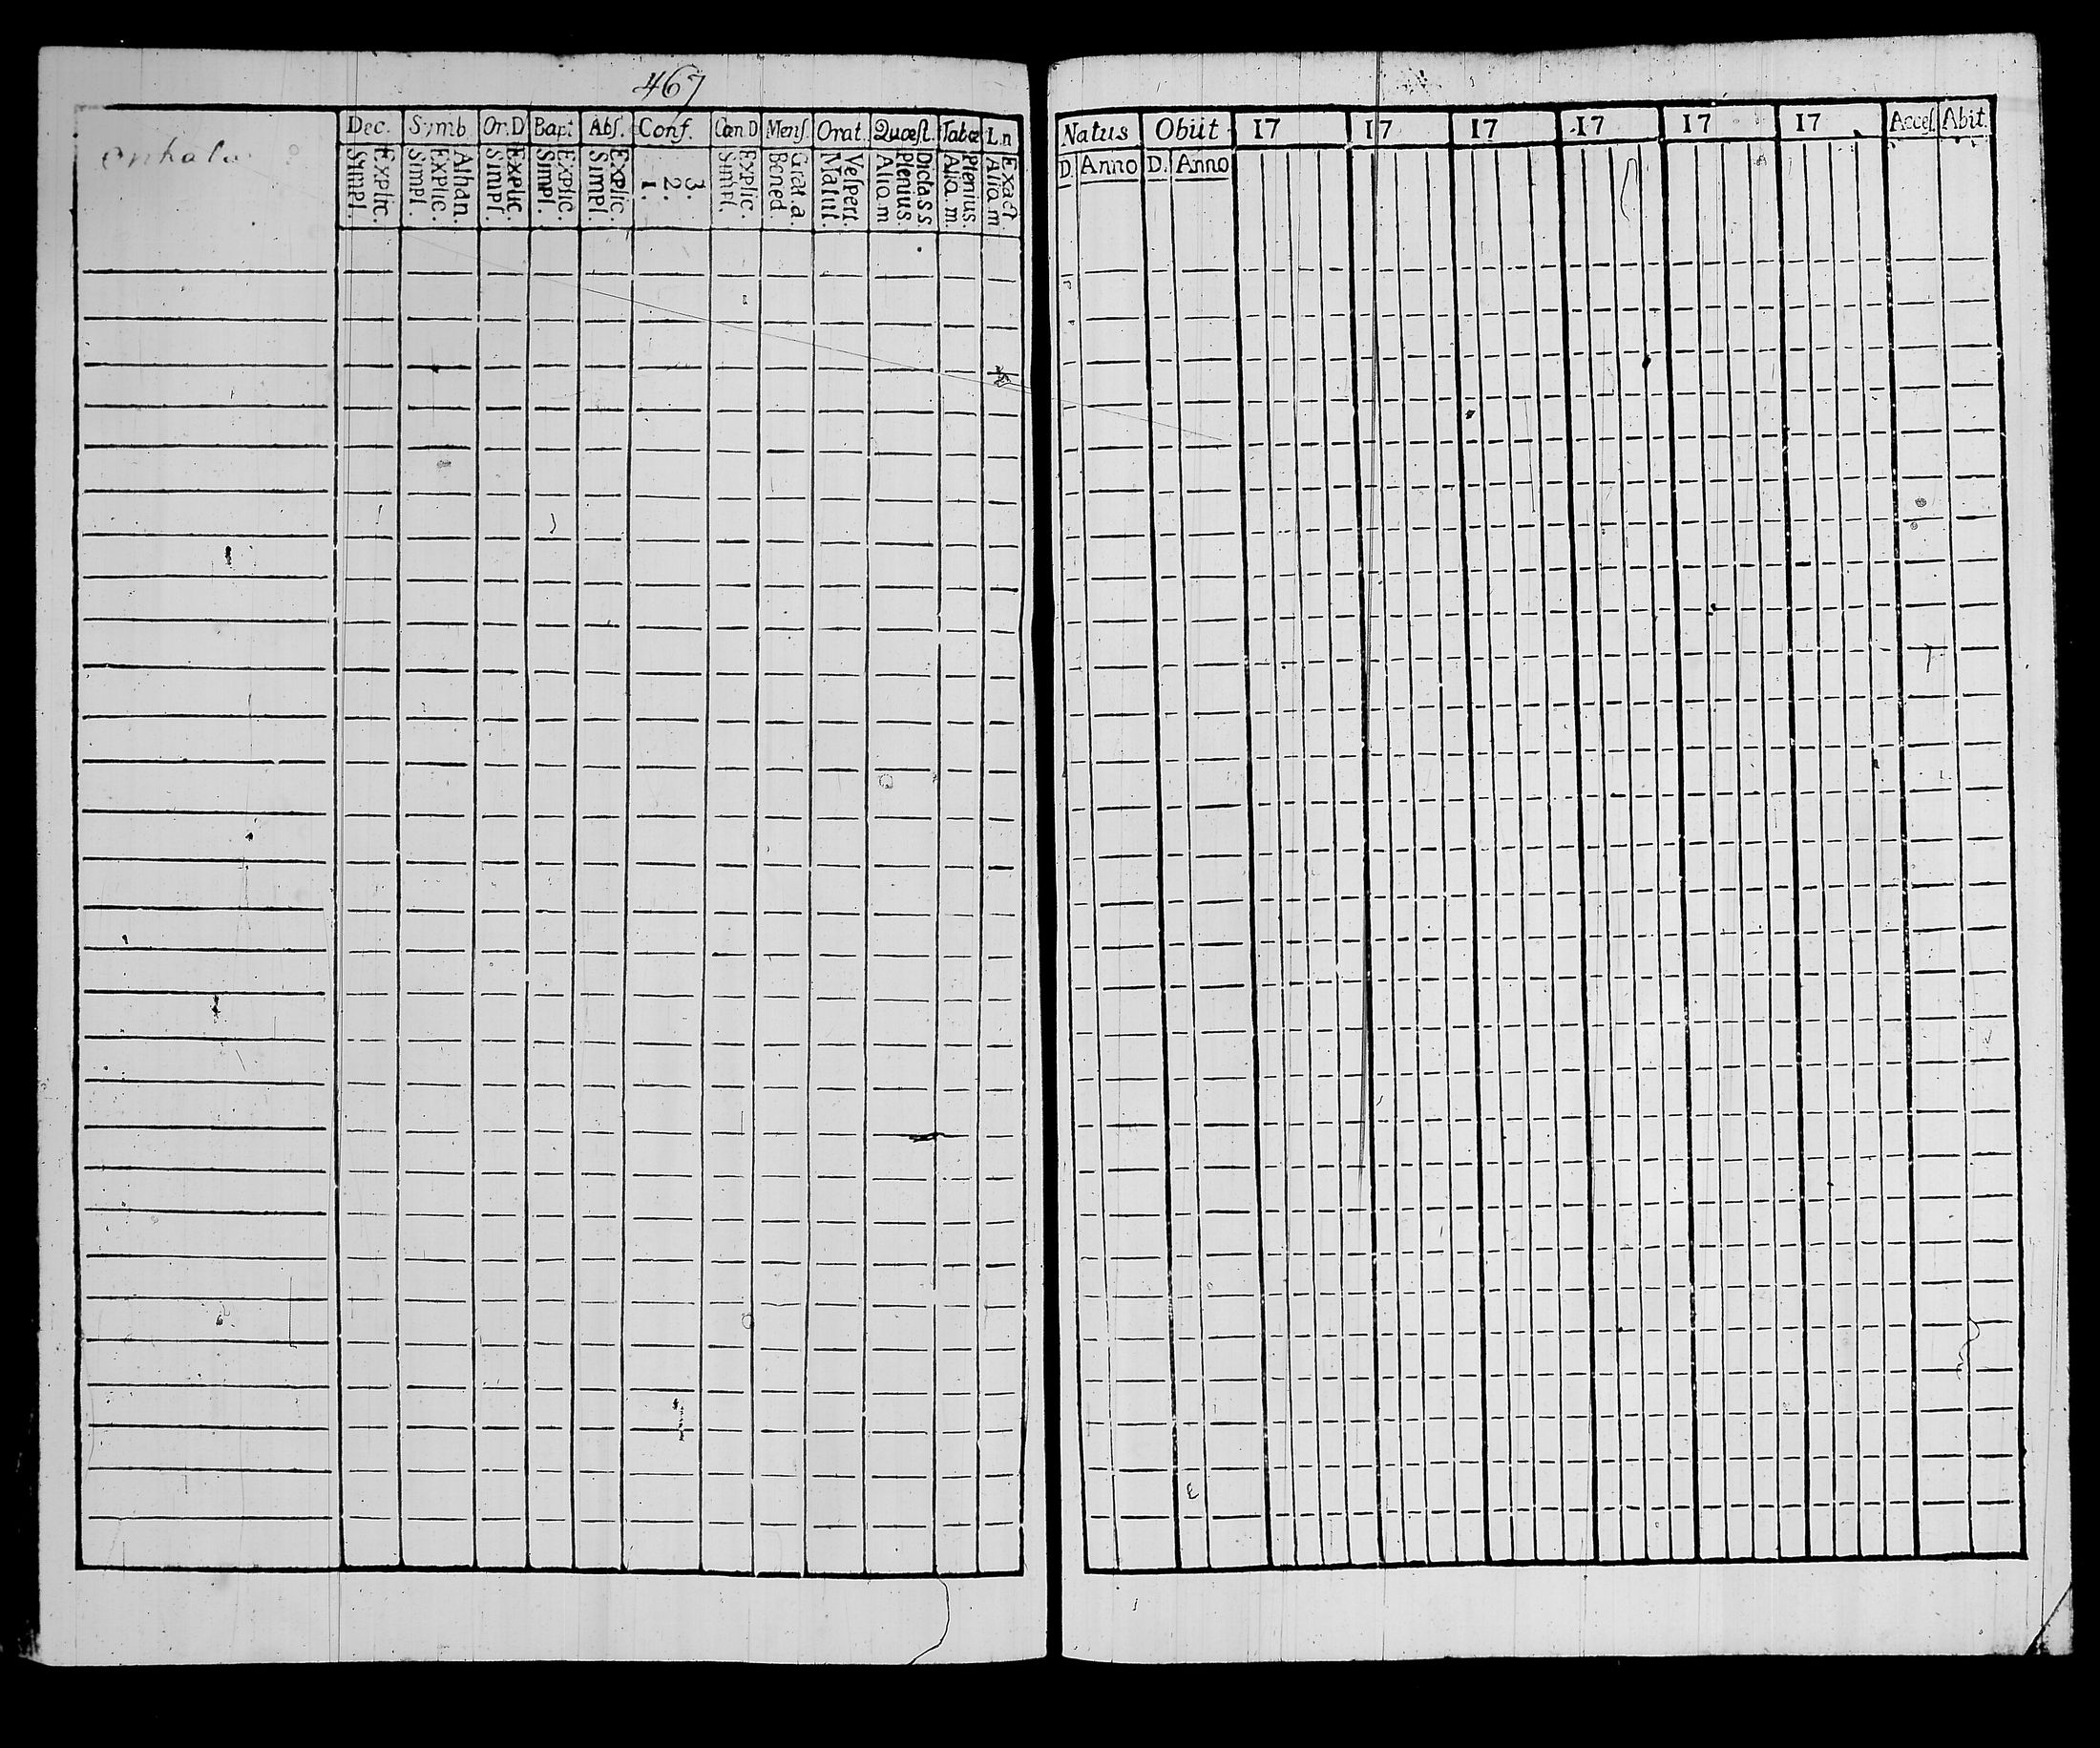 467
Dec. Symb. Or. D Bapt Abſ. Conf. Cœn D Menſ. Orat. Quœſt. Tabœ L.n
Explic. Simpl. Athan. Explic. Simpl. Explic. Simpl. Explic. Simpl. Explic. Simpl. 3. 2. 1. Explic. Simpl. Grat. a. Bened Veſpert. Matut. Dicta. s. s. Plenius Aliq. m Plenius. Aliq. m. Exact Aliq. m
Natus Obiit 17 17 17 17 17 17 Acceſ. Abit.
D. Anno D. Anno